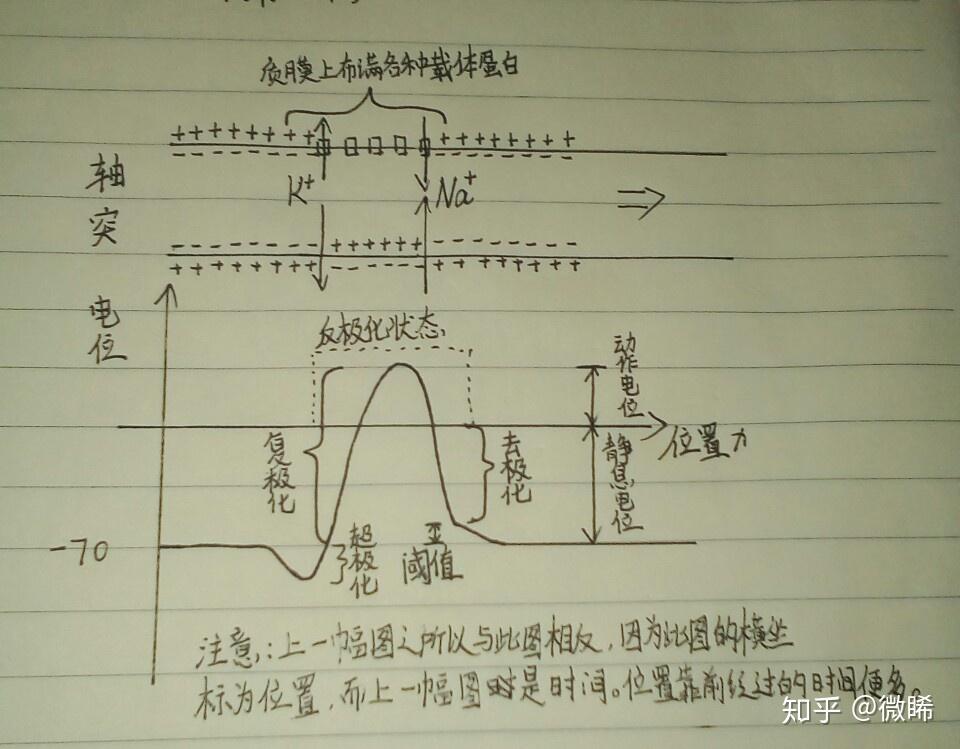 质膜上布满各种载体蛋白
+ + + + + + + + + + + + + + + +
- - - - - - - - - - - - - - - -
轴突
K⁺ Na⁺ ⇒
- - - - - - - - + + + + + + - - - - - - - -
+ + + + + + + + - - - - - - + + + + + + + +
电位
反极化状态
动作电位
位置
复极化
去极化
静息电位
-70
超极化
亚阈值
注意:上一幅图之所以与此图相反,因为此图的横坐
标为位置,而上一幅图是时间。位置靠前经过的时间便多。
知乎 @微睎